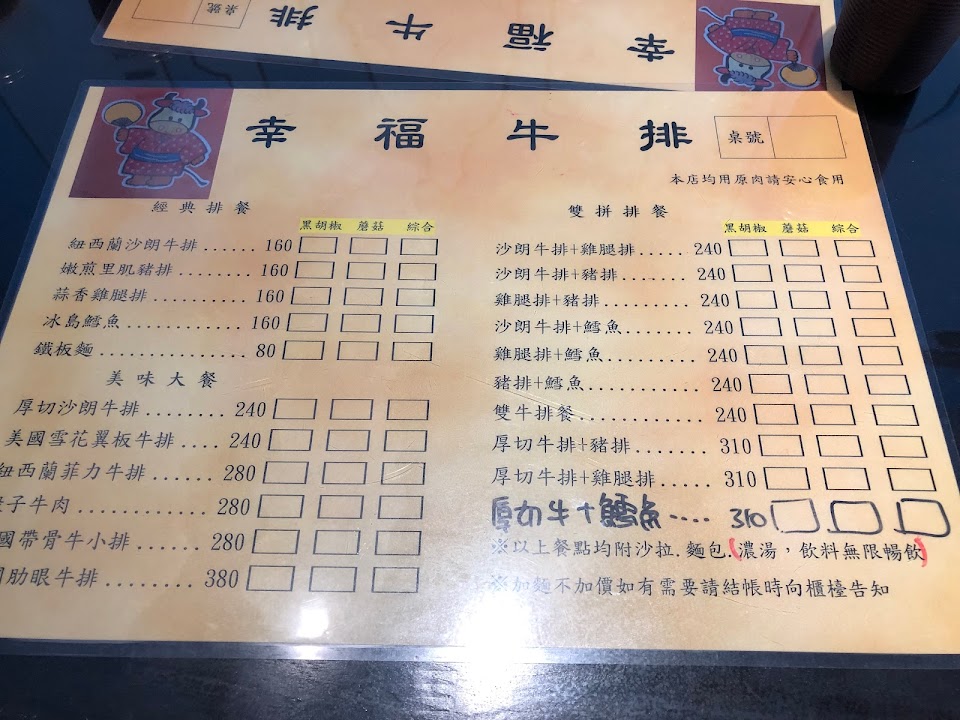 幸福牛排
桌號
幸福牛排
桌號
本店均用原肉請安心食用
經典排餐
黑胡椒 蘑菇 綜合
紐西蘭沙朗牛排......160
嫩煎里肌豬排........160
蒜香雞腿排..........160
冰島鱈魚............160
鐵板麵...............80
美味大餐
厚切沙朗牛排........240
美國雪花翼板牛排....240
紐西蘭菲力牛排......280
子牛肉............280
國帶骨牛小排......280
肋眼牛排........380
雙拼排餐
黑胡椒 蘑菇 綜合
沙朗牛排+雞腿排.....240
沙朗牛排+豬排.......240
雞腿排+豬排.........240
沙朗牛排+鱈魚.......240
雞腿排+鱈魚.........240
豬排+鱈魚...........240
雙牛排餐............240
厚切牛排+豬排.......310
厚切牛排+雞腿排.....310
厚切牛+鱈魚....310
※以上餐點均附沙拉.麵包.(濃湯,飲料無限暢飲)
※加麵不加價如有需要請結帳時向櫃檯告知